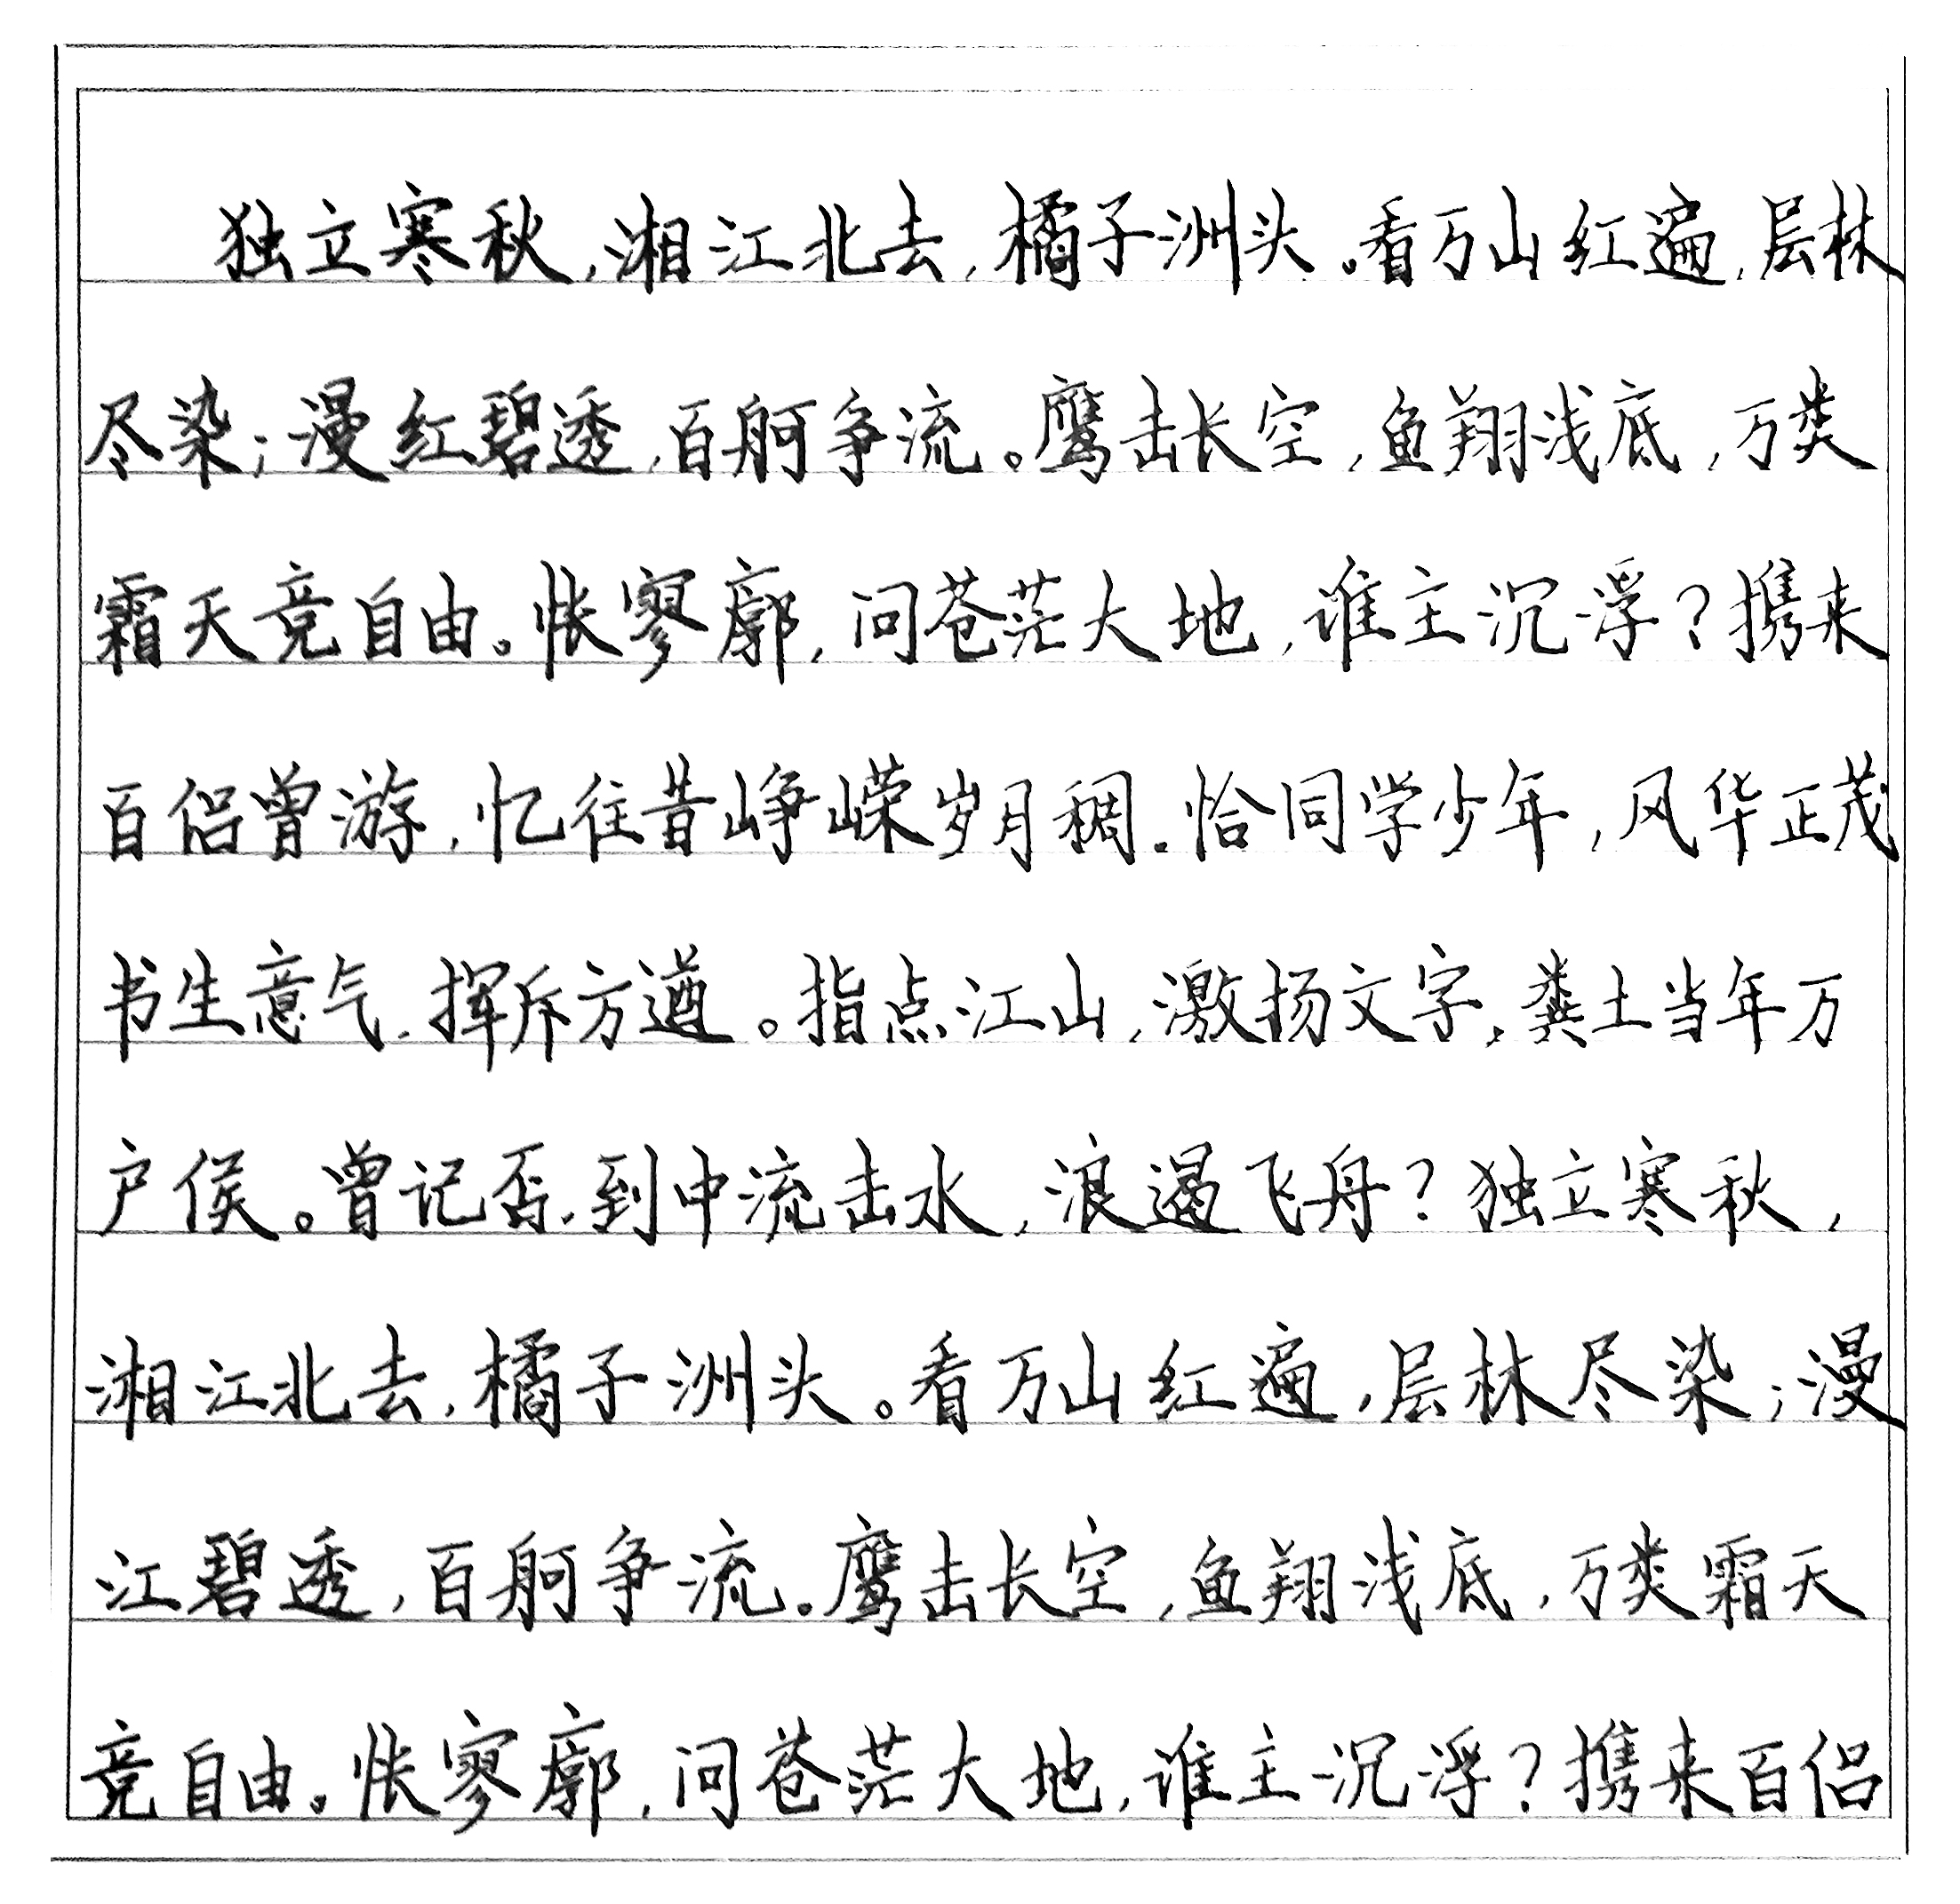 独立寒秋,湘江北去,橘子洲头。看万山红遍,层林
尽染;漫红碧透,百舸争流。鹰击长空,鱼翔浅底,万类
霜天竞自由。怅寥廓,问苍茫大地,谁主沉浮?携来
百侣曾游,忆往昔峥嵘岁月稠。恰同学少年,风华正茂
书生意气,挥斥方遒。指点江山,激扬文字,粪土当年万
户侯。曾记否,到中流击水,浪遏飞舟?独立寒秋,
湘江北去,橘子洲头。看万山红遍,层林尽染;漫
江碧透,百舸争流。鹰击长空,鱼翔浅底,万类霜天
竞自由。怅寥廓,问苍茫大地,谁主沉浮?携来百侣